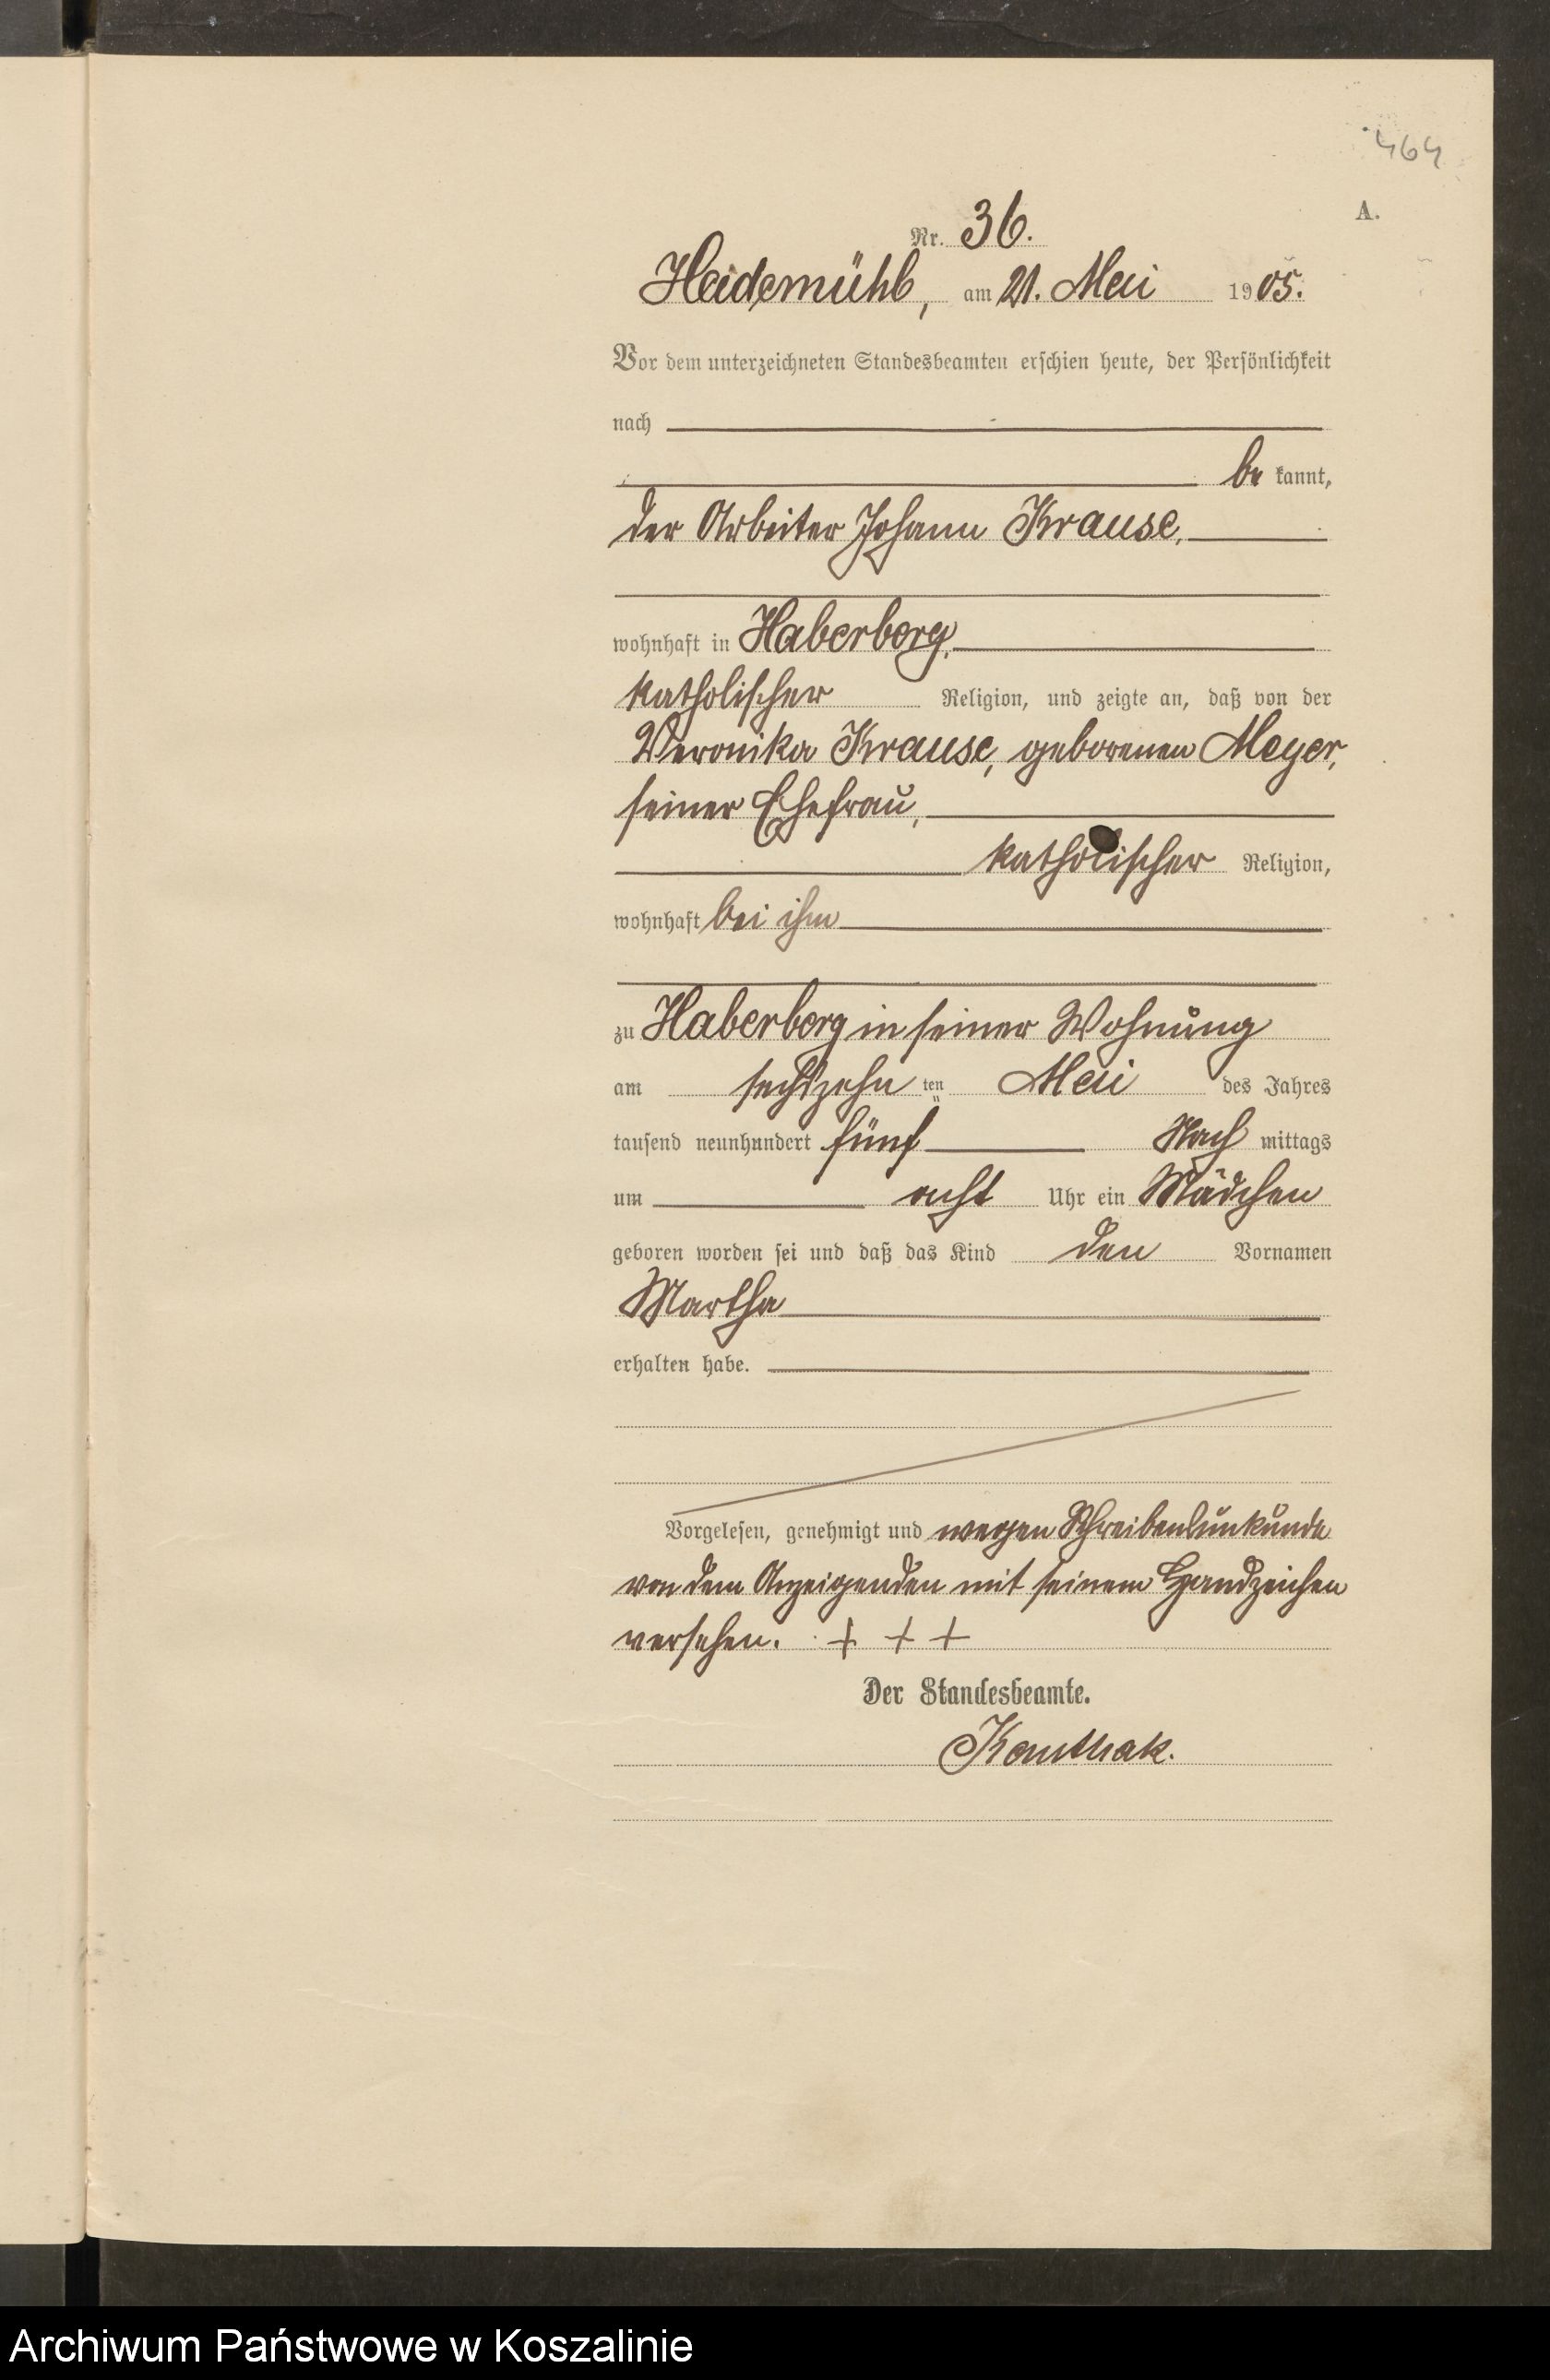 464
A.
Nr. 36.
Heidemühl, am 21. Mai 1905.
Vor dem unterzeichneten Standesbeamten erschien heute, der Persönlichkeit
nach
be kannt,
der Arbeiter Johann Krause,
wohnhaft in Haberberg,
katholischer Religion, und zeigte an, daß von der
Veronika Krause, geborenen Meyer,
seiner Ehefrau,
katholischer Religion,
wohnhaft bei ihm
zu Haberberg in seiner Wohnung
am sechszehn ten Mai des Jahres
tausend neunhundert fünf Nach mittags
um acht Uhr ein Mädchen
geboren worden sei und daß das Kind den Vornamen
Martha
erhalten habe.
Vorgelesen, genehmigt und wegen Schreibensunkunde
von dem Anzeigenden mit seinem Handzeichen
versehen. + + +
Der Standesbeamte.
Kauthak.
Archiwum Państwowe w Koszalinie